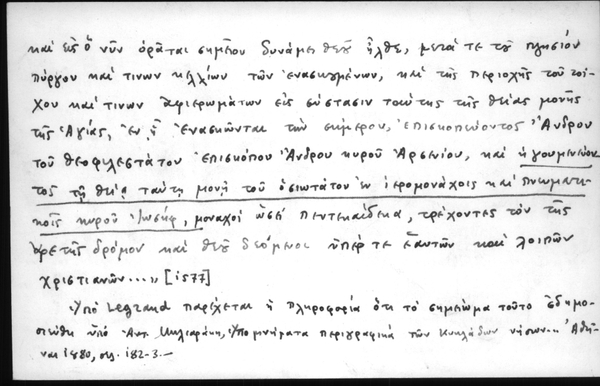 καὶ εἰς ὃ νῦν ὁρᾶται σημεῖον δυνάμει θεοῦ ἦλθε, μετά τε τοῦ πλησίον
πύργου καί τινων κελλίων τῶν ἐνασκουμένων, καὶ τῆς περιοχῆς τοῦ τοί-
χου καί τινων ἀφιερωμάτων εἰς σύστασιν ταύτης τῆς θείας μονῆς
τῆς Ἁγίας, ἐν ᾗ ἐνασκῶνται τὴν σήμερον, ἐπισκοπεύοντος Ἄνδρου
τοῦ θεοφιλεστάτου ἐπισκόπου Ἄνδρου κυροῦ Ἀρσενίου, καὶ ἡγουμενεύον-
τος τῇ θείᾳ ταύτῃ μονῇ τοῦ ὁσιωτάτου ἐν ἱερομονάχοις καὶ πνευματι-
κοῖς κυροῦ Ἰωσήφ, μοναχοὶ ὡσεὶ πεντεκαίδεκα, τρέχοντες τὸν τῆς
ἀρετῆς δρόμον καὶ θεοῦ δεόμενοι ὑπέρ τε ἑαυτῶν καὶ λοιπῶν
χριστιανῶν...» [1577]
Ὑπὸ Legrand παρέχεται ἡ πληροφορία ὅτι τὸ σημείωμα τοῦτο ἐδημο-
σιεύθη ὑπὸ Ἀντ. Μηλιαράκη, Ὑπομνήματα περιγραφικὰ τῶν Κυκλάδων νήσων... Ἀθῆ-
ναι 1880, σελ. 182-3.—